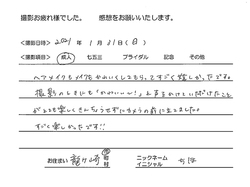 撮影お疲れ様でした。　感想をお願いいたします。
<撮影日時>　2021年　1月　31日(日)
<撮影項目>　成人　七五三　ブライダル　記念　その他
ヘアメイクもメイクもかわいくしてもらってすごく嬉しかったです。
撮影のときにも「かわいい〜!」と声をかけていただけたこと
がとても楽しく
カメラの前に立てました。
すごく楽しかったです!!
お住まい　龍ケ崎　市　町　村　ニックネーム　イニシャル